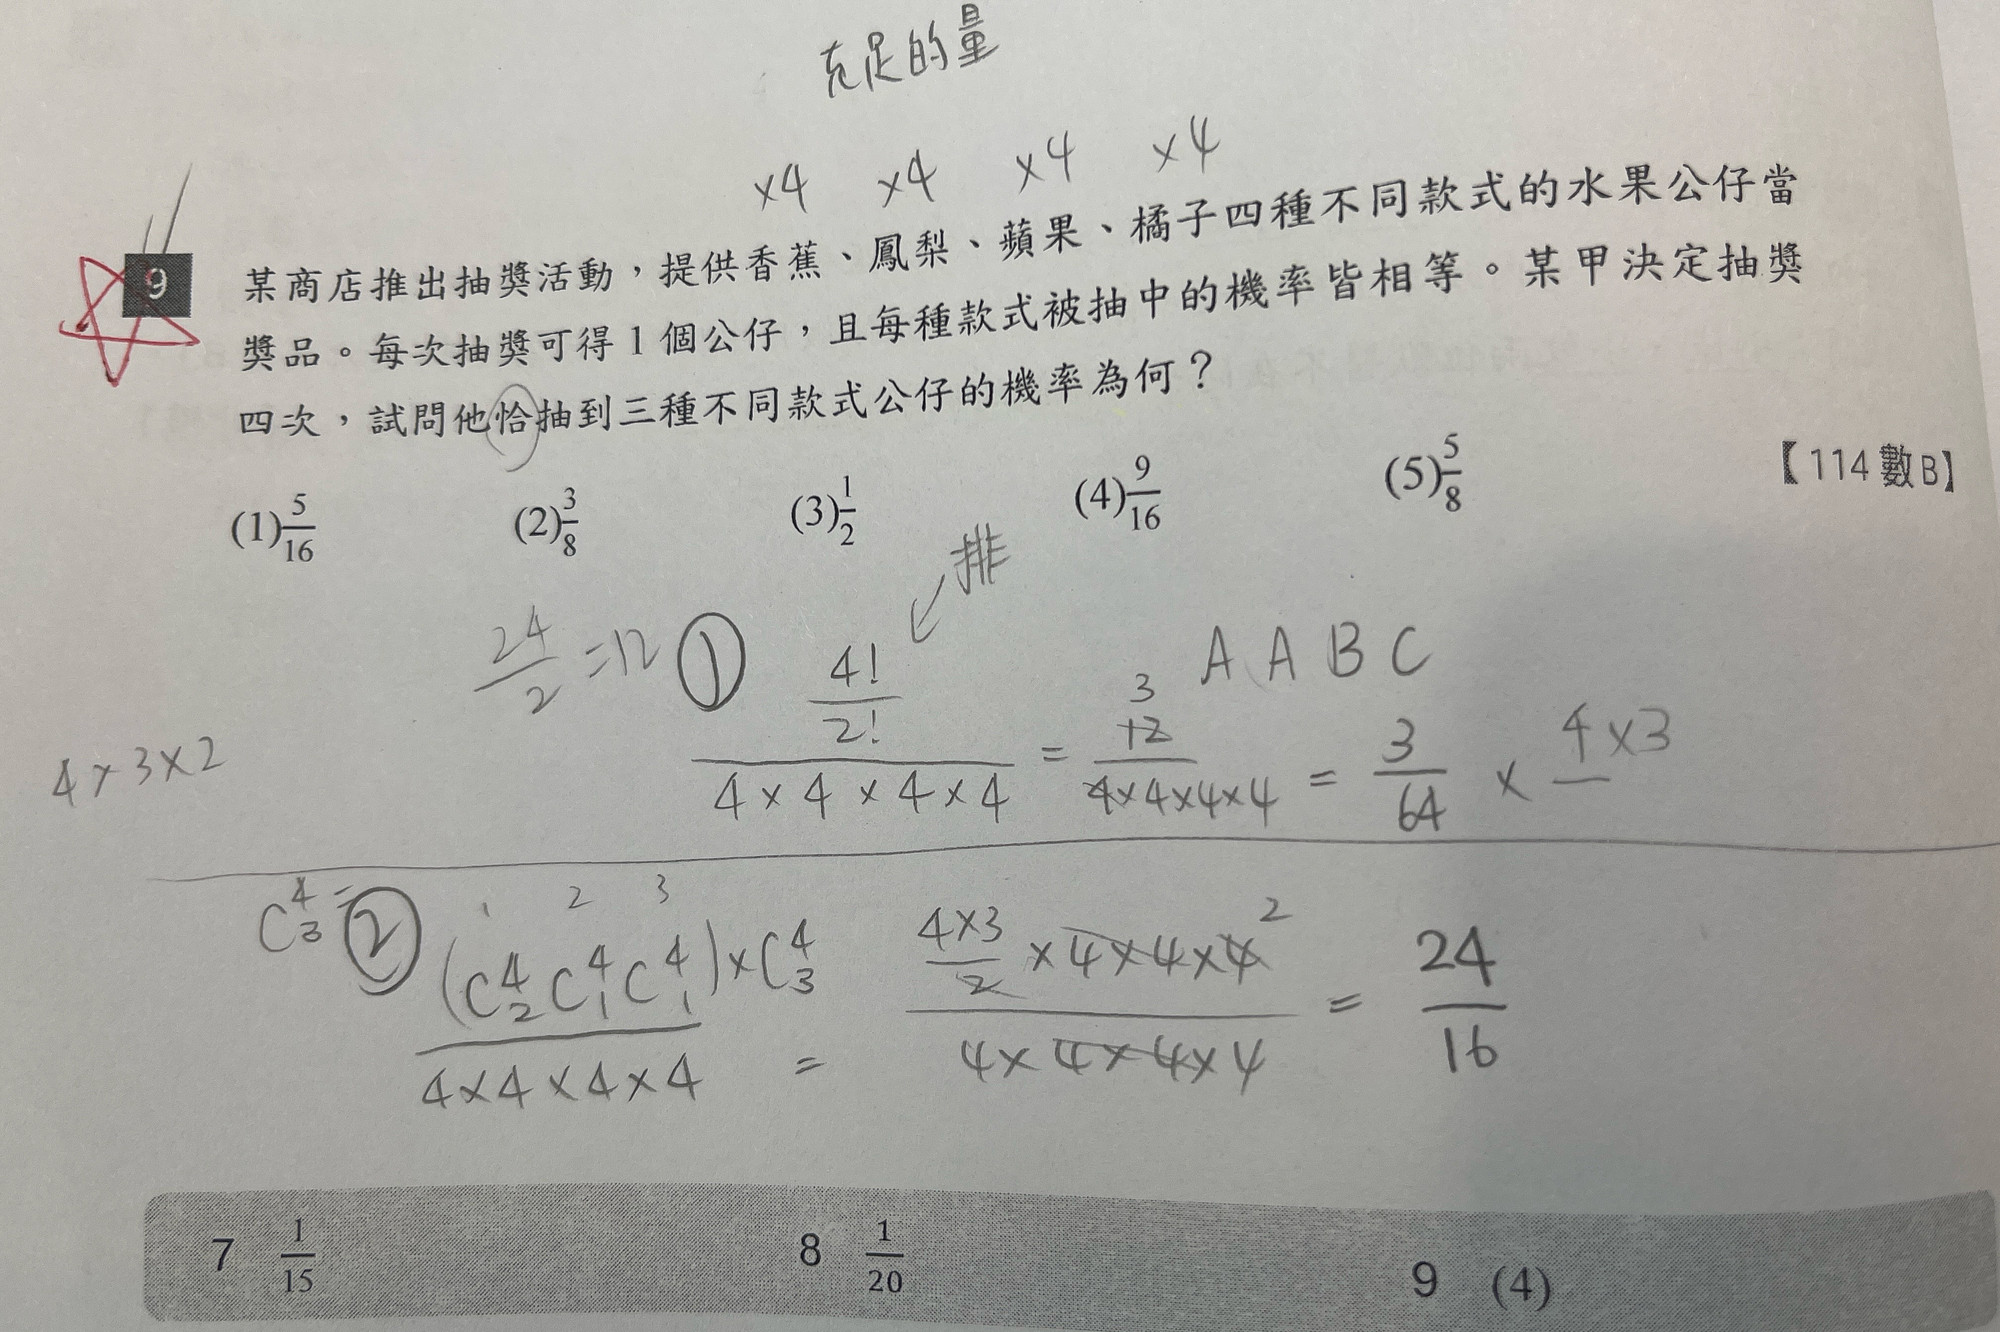 充足的量
×4 ×4 ×4 ×4
9 某商店推出抽獎活動，提供香蕉、鳳梨、蘋果、橘子四種不同款式的水果公仔當
獎品。每次抽獎可得1個公仔，且每種款式被抽中的機率皆相等。某甲決定抽獎
四次，試問他恰抽到三種不同款式公仔的機率為何？
【114數B】
(1) 5/16 (2) 3/8 (3) 1/2 (4) 9/16 (5) 5/8
排
24/2 = 12 ① (4!/2!)/(4×4×4×4) = 3 12/(4×4×4×4) = 3/64 × 4×3
A A B C
4×3×2
C^4_3 = ② 1 2 3
(C^4_2 C^4_1 C^4_1)×C^4_3/(4×4×4×4) = (4×3/2 ×4×4×4 2)/(4×4×4×4) = 24/16
7 1/15 8 1/20 9 (4)